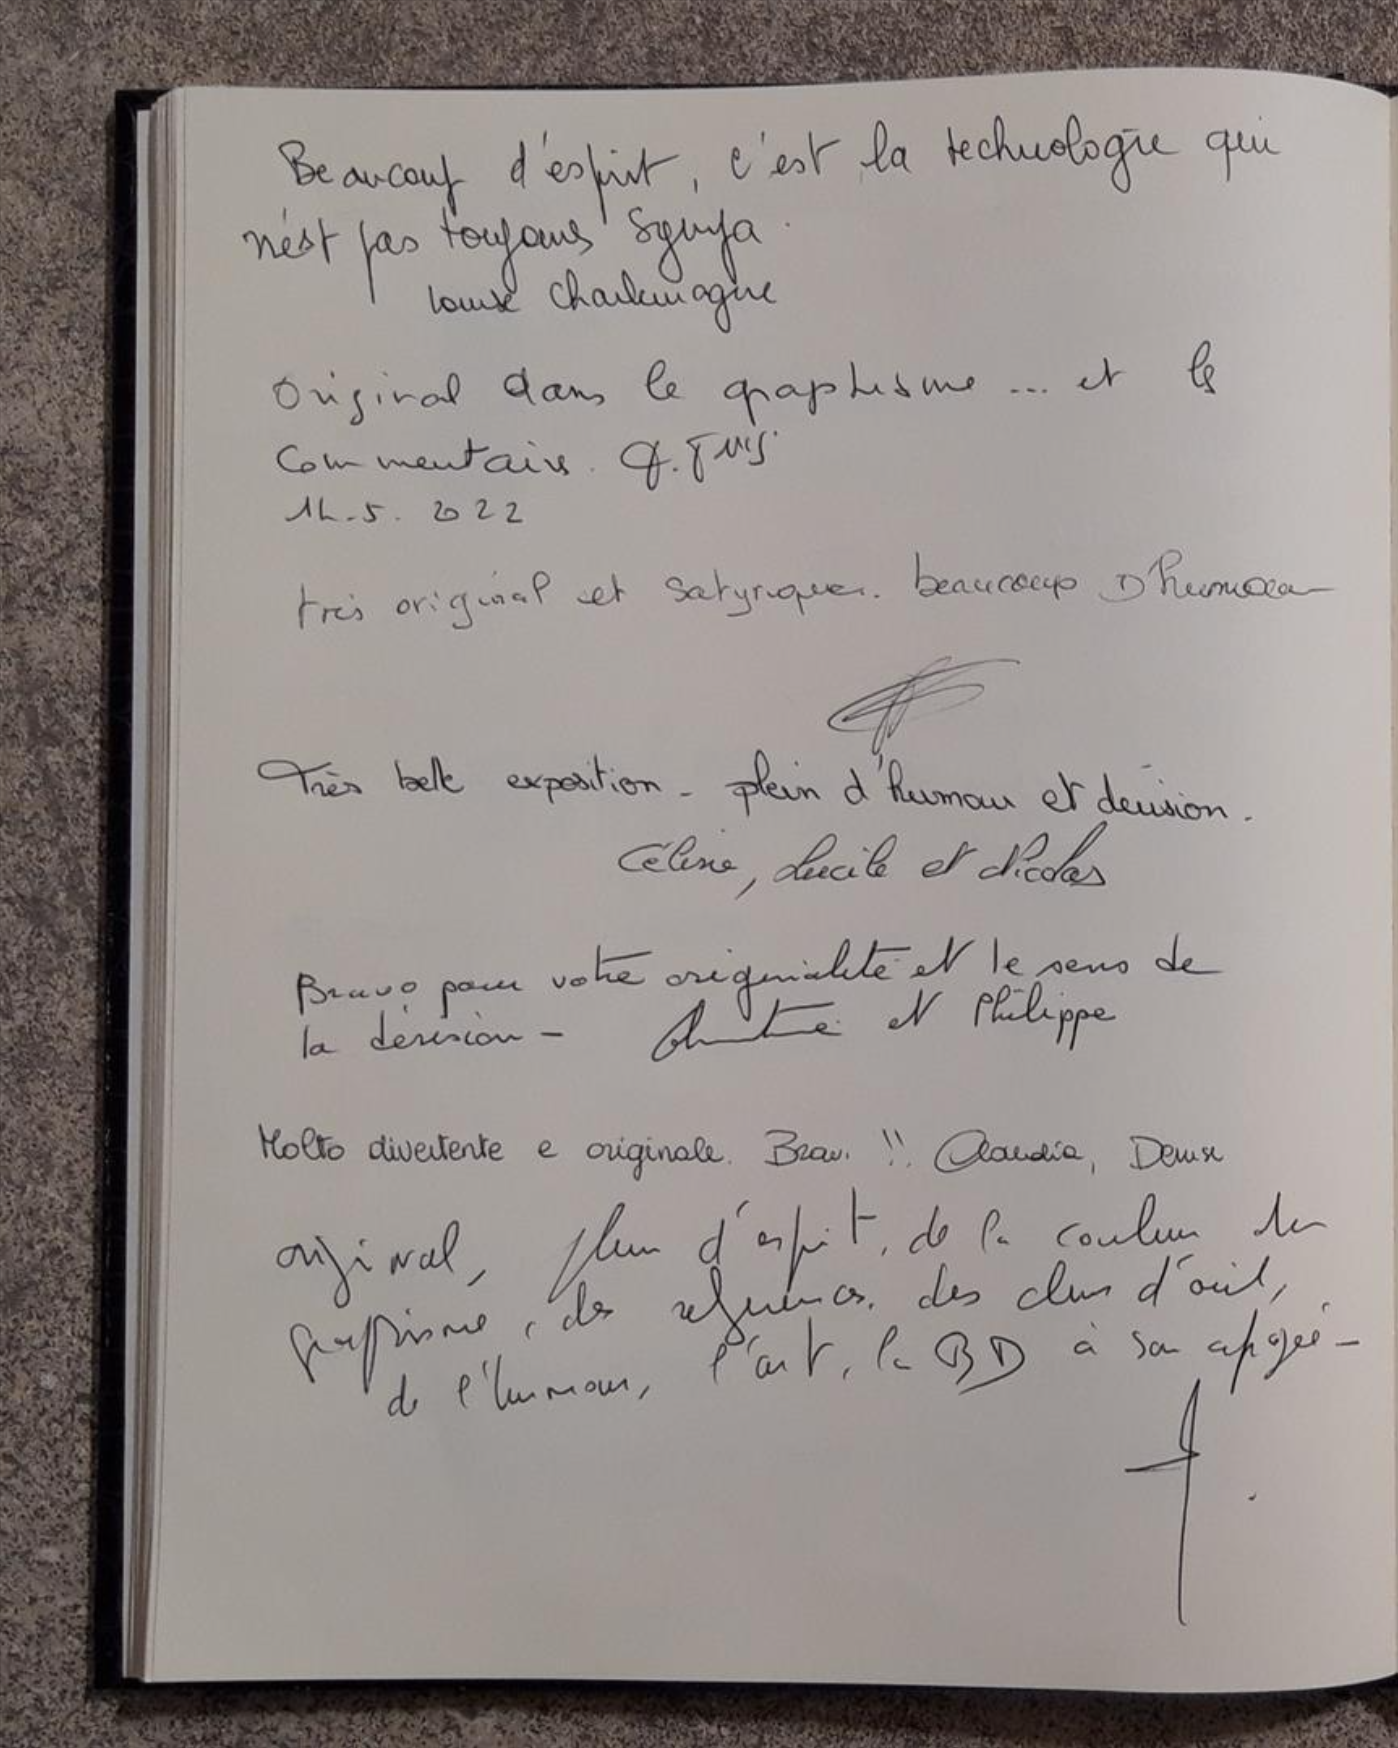 Beaucoup d'esprit, c'est la technologie qui
n'est pas toujours sympa.
Louise Charlemagne
Original dans le graphisme ... et le
Commentaire.
14.5.2022
très original et satyrique. beaucoup D'humour
Très belle exposition - plein d'humour et derision.
Céline, Lucile et Nicolas
Bravo pour votre originalité et le sens de
la dérision - et Philippe
Molto divertente e originale. Bravi !! Claudia, Denise
original, plein d'esprit, de la couleur du
graphisme, des références, des clins d'œil,
de l'humour, l'art, la BD à son apogée -